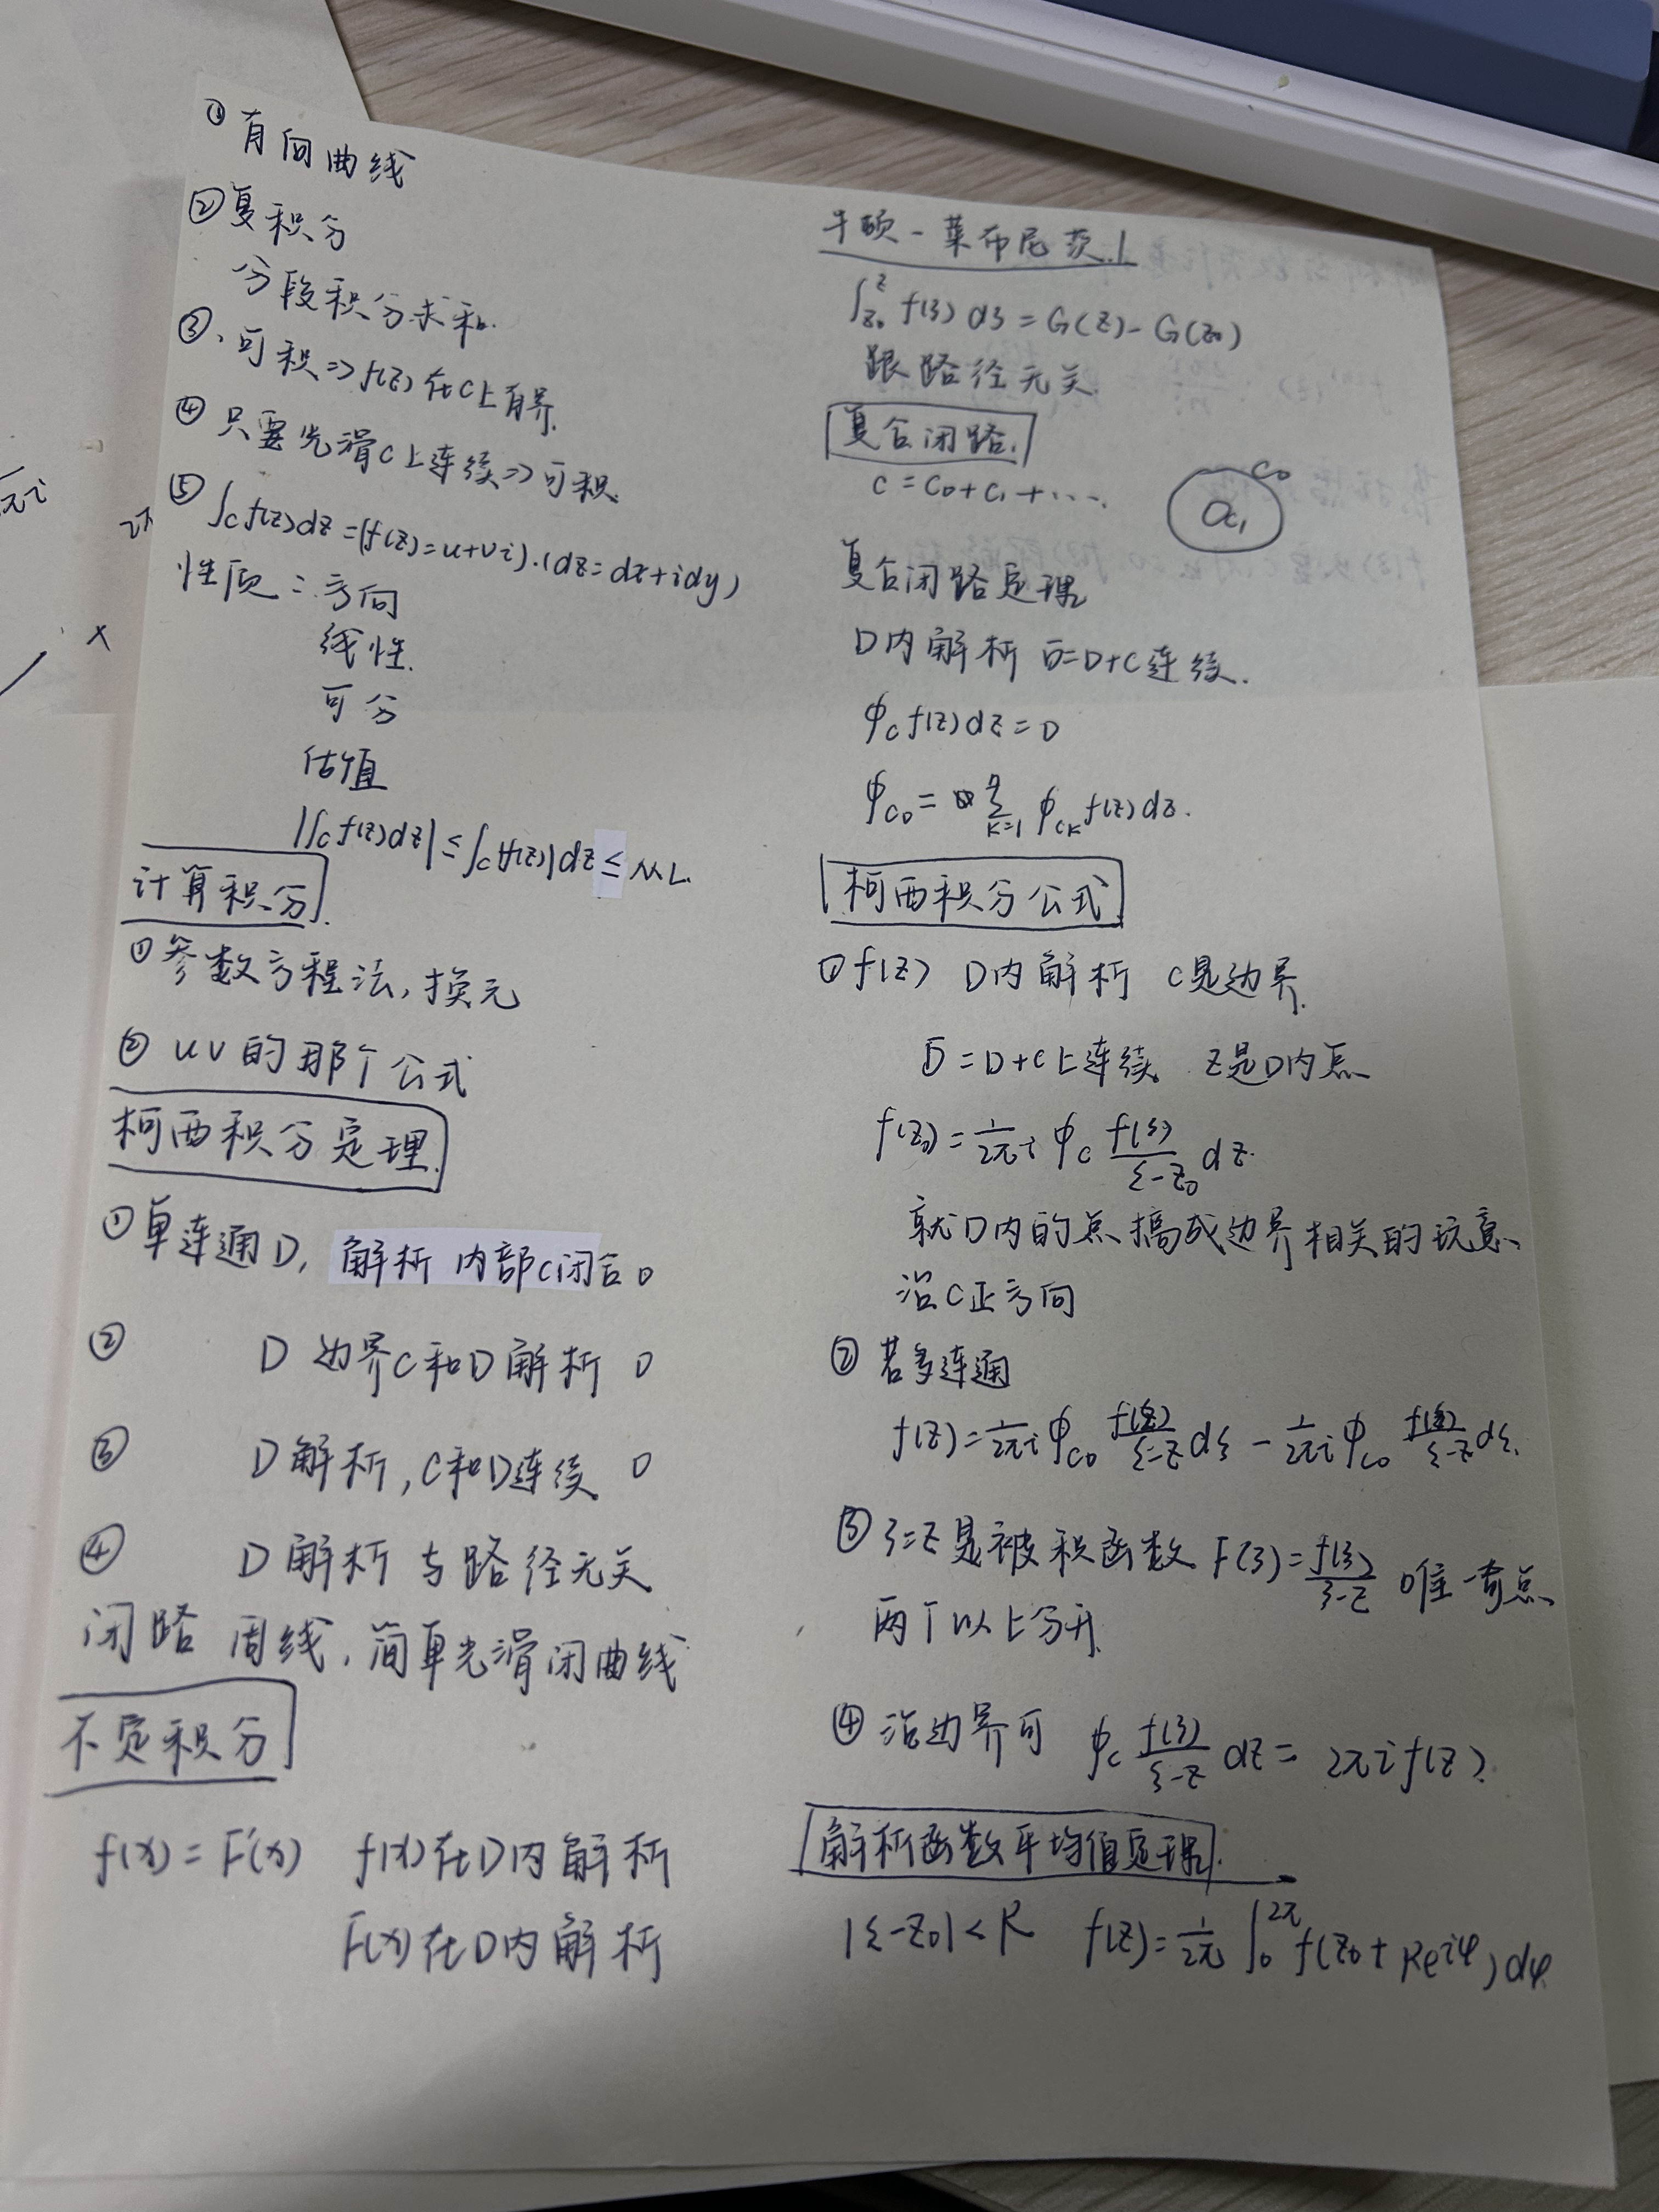 ① 有向曲线
② 复积分
分段积分求和.
③、可积 => f(z) 在C上有界.
④ 只要光滑C上连续 => 可积.
⑤ ∫_C f(z)dz = (f(z)=u+vi)·(dz=dx+idy)
性质: 方向
线性.
可分
估值
|∫_C f(z)dz| ≤ ∫_C |f(z)|dz ≤ ML.
计算积分.
① 参数方程法, 换元
② uv的那个公式
柯西积分定理.
① 单连通D, 解析 内部C闭合 0
② D 边界C和D解析 0
③ D解析, C和D连续 0
④ D解析 与路径无关
闭路 周线, 简单光滑闭曲线
不定积分
f(x) = F'(x) f(x)在D内解析
F(x)在D内解析
牛顿-莱布尼茨.
∫_{z_0}^{z} f(ζ) dζ = G(z) - G(z_0)
跟路径无关.
复合闭路.
C = C_0 + C_1 + ···.
C_0
C_1
复合闭路定理
D内解析 D̄=D+C连续.
∮_C f(z)dz = 0
∮_{C_0} = Σ_{k=1}^{n} ∮_{C_k} f(z)dz.
柯西积分公式
① f(z) D内解析 C是边界.
D̄ = D+C上连续. z是D内点
f(z_0) = 1/2πi ∮_C f(ζ)/(ξ-z_0) dz.
就D内的点搞成边界相关的玩意.
沿C正方向
② 若多连通
f(z) = 1/2πi ∮_{C_0} f(ξ)/(ξ-z) dξ - 1/2πi ∮_{C_0} f(ξ)/(ξ-z) dξ.
③ ζ=z是被积函数 F(ζ) = f(ζ)/(ζ-z) D唯一奇点.
两个以上分开.
④ 沿边界可 ∮_C f(ζ)/(ξ-z) dz = 2πi f(z).
解析函数平均值定理.
|ξ-z_0| < R f(z) = 1/2π ∫_0^{2π} f(z_0 + Re^{iφ}) dφ